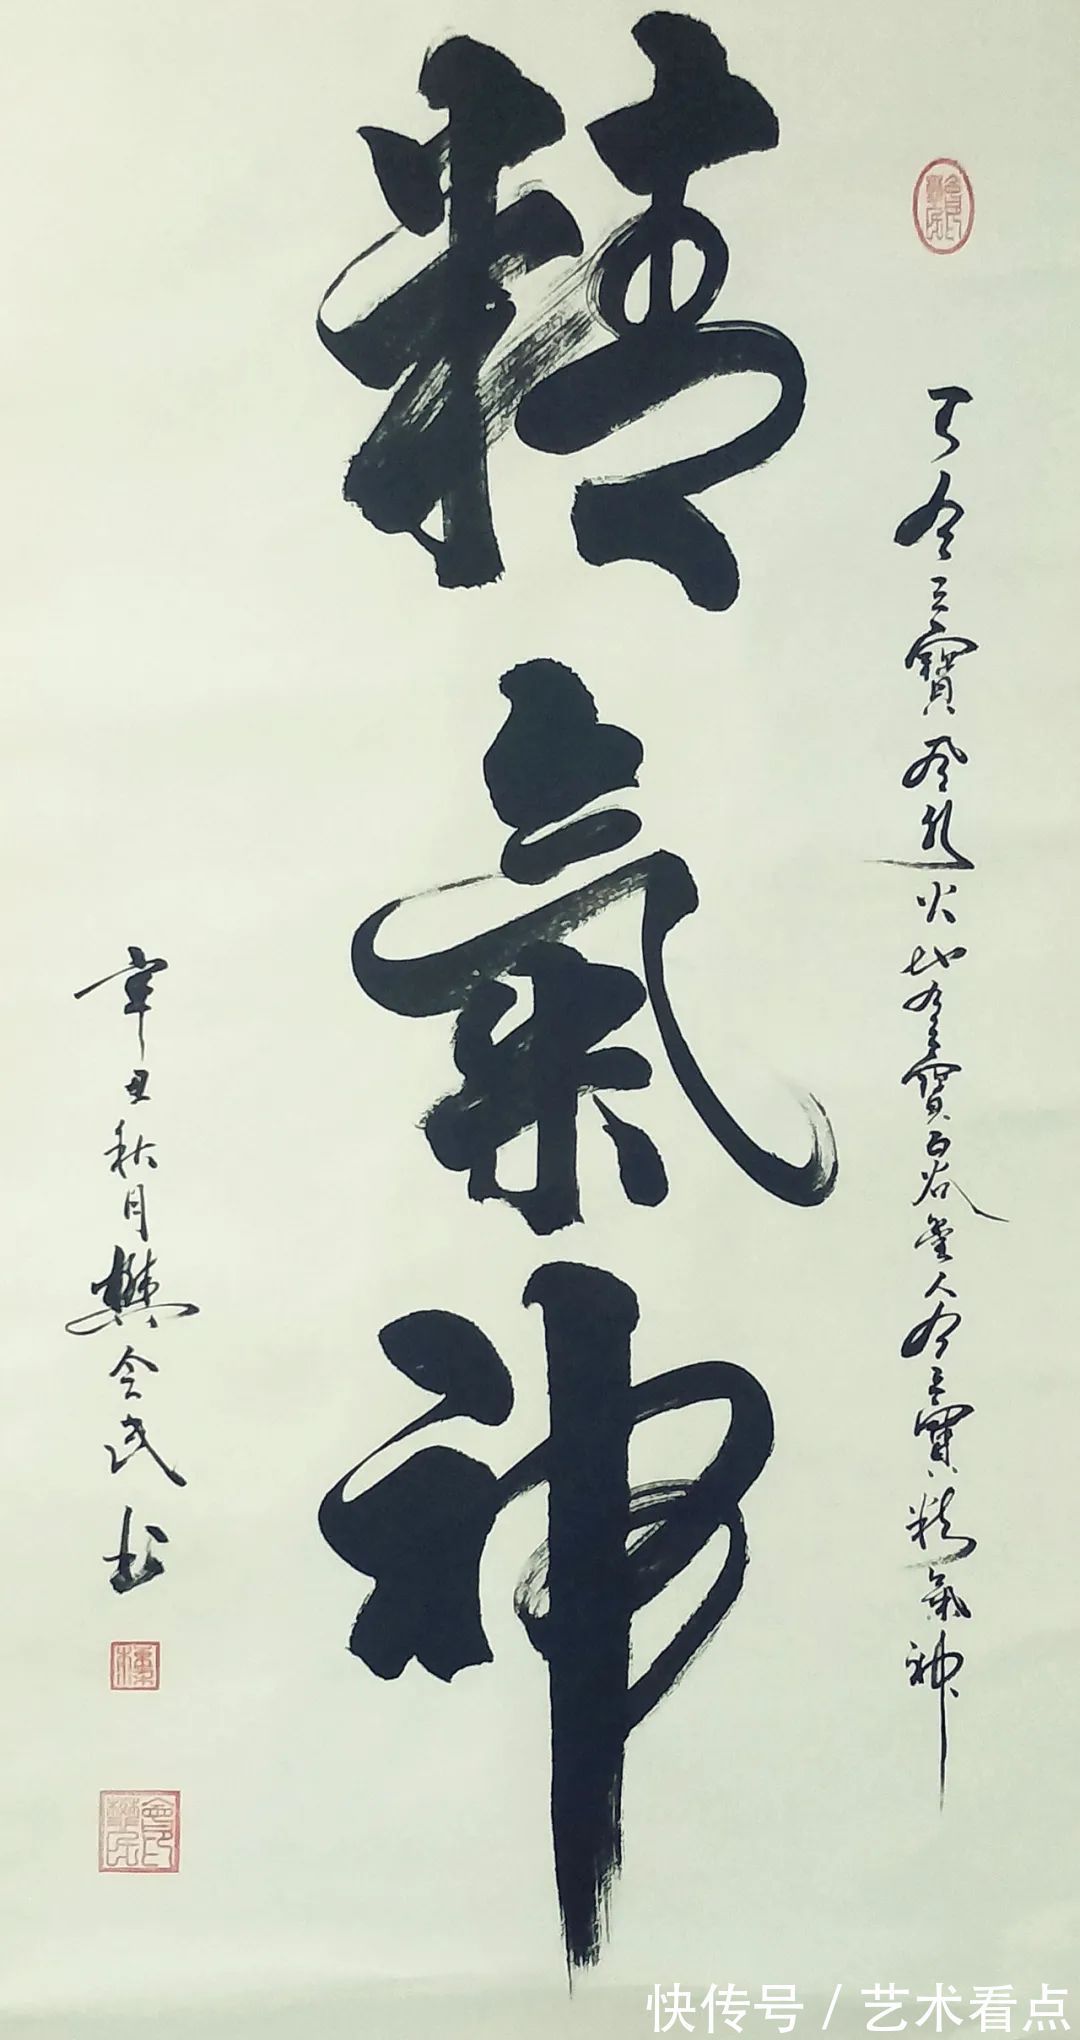 天有三寶風火地有寶百谷人有三寶精氣神
精氣神
辛丑秋月樊会民书
快传号/艺术看点